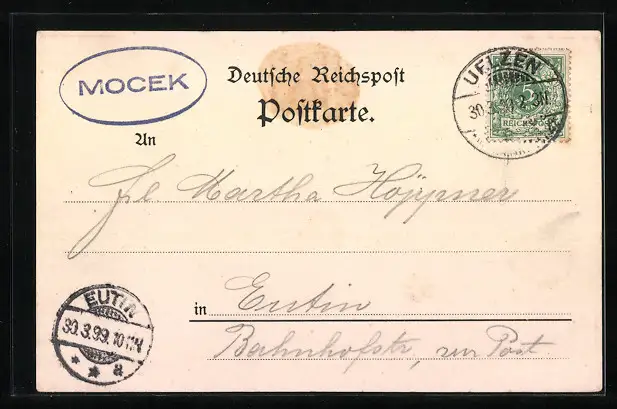 MOCEK
Deutsche Reichspost
Postkarte.
UELZEN
30.3.99. 2-3N
5
REICHSPOST
An
Frl Martha Höppner
in Eutin
Bahnhofstr, zur Post
EUTIN
30.3.99.10-11N
* * a